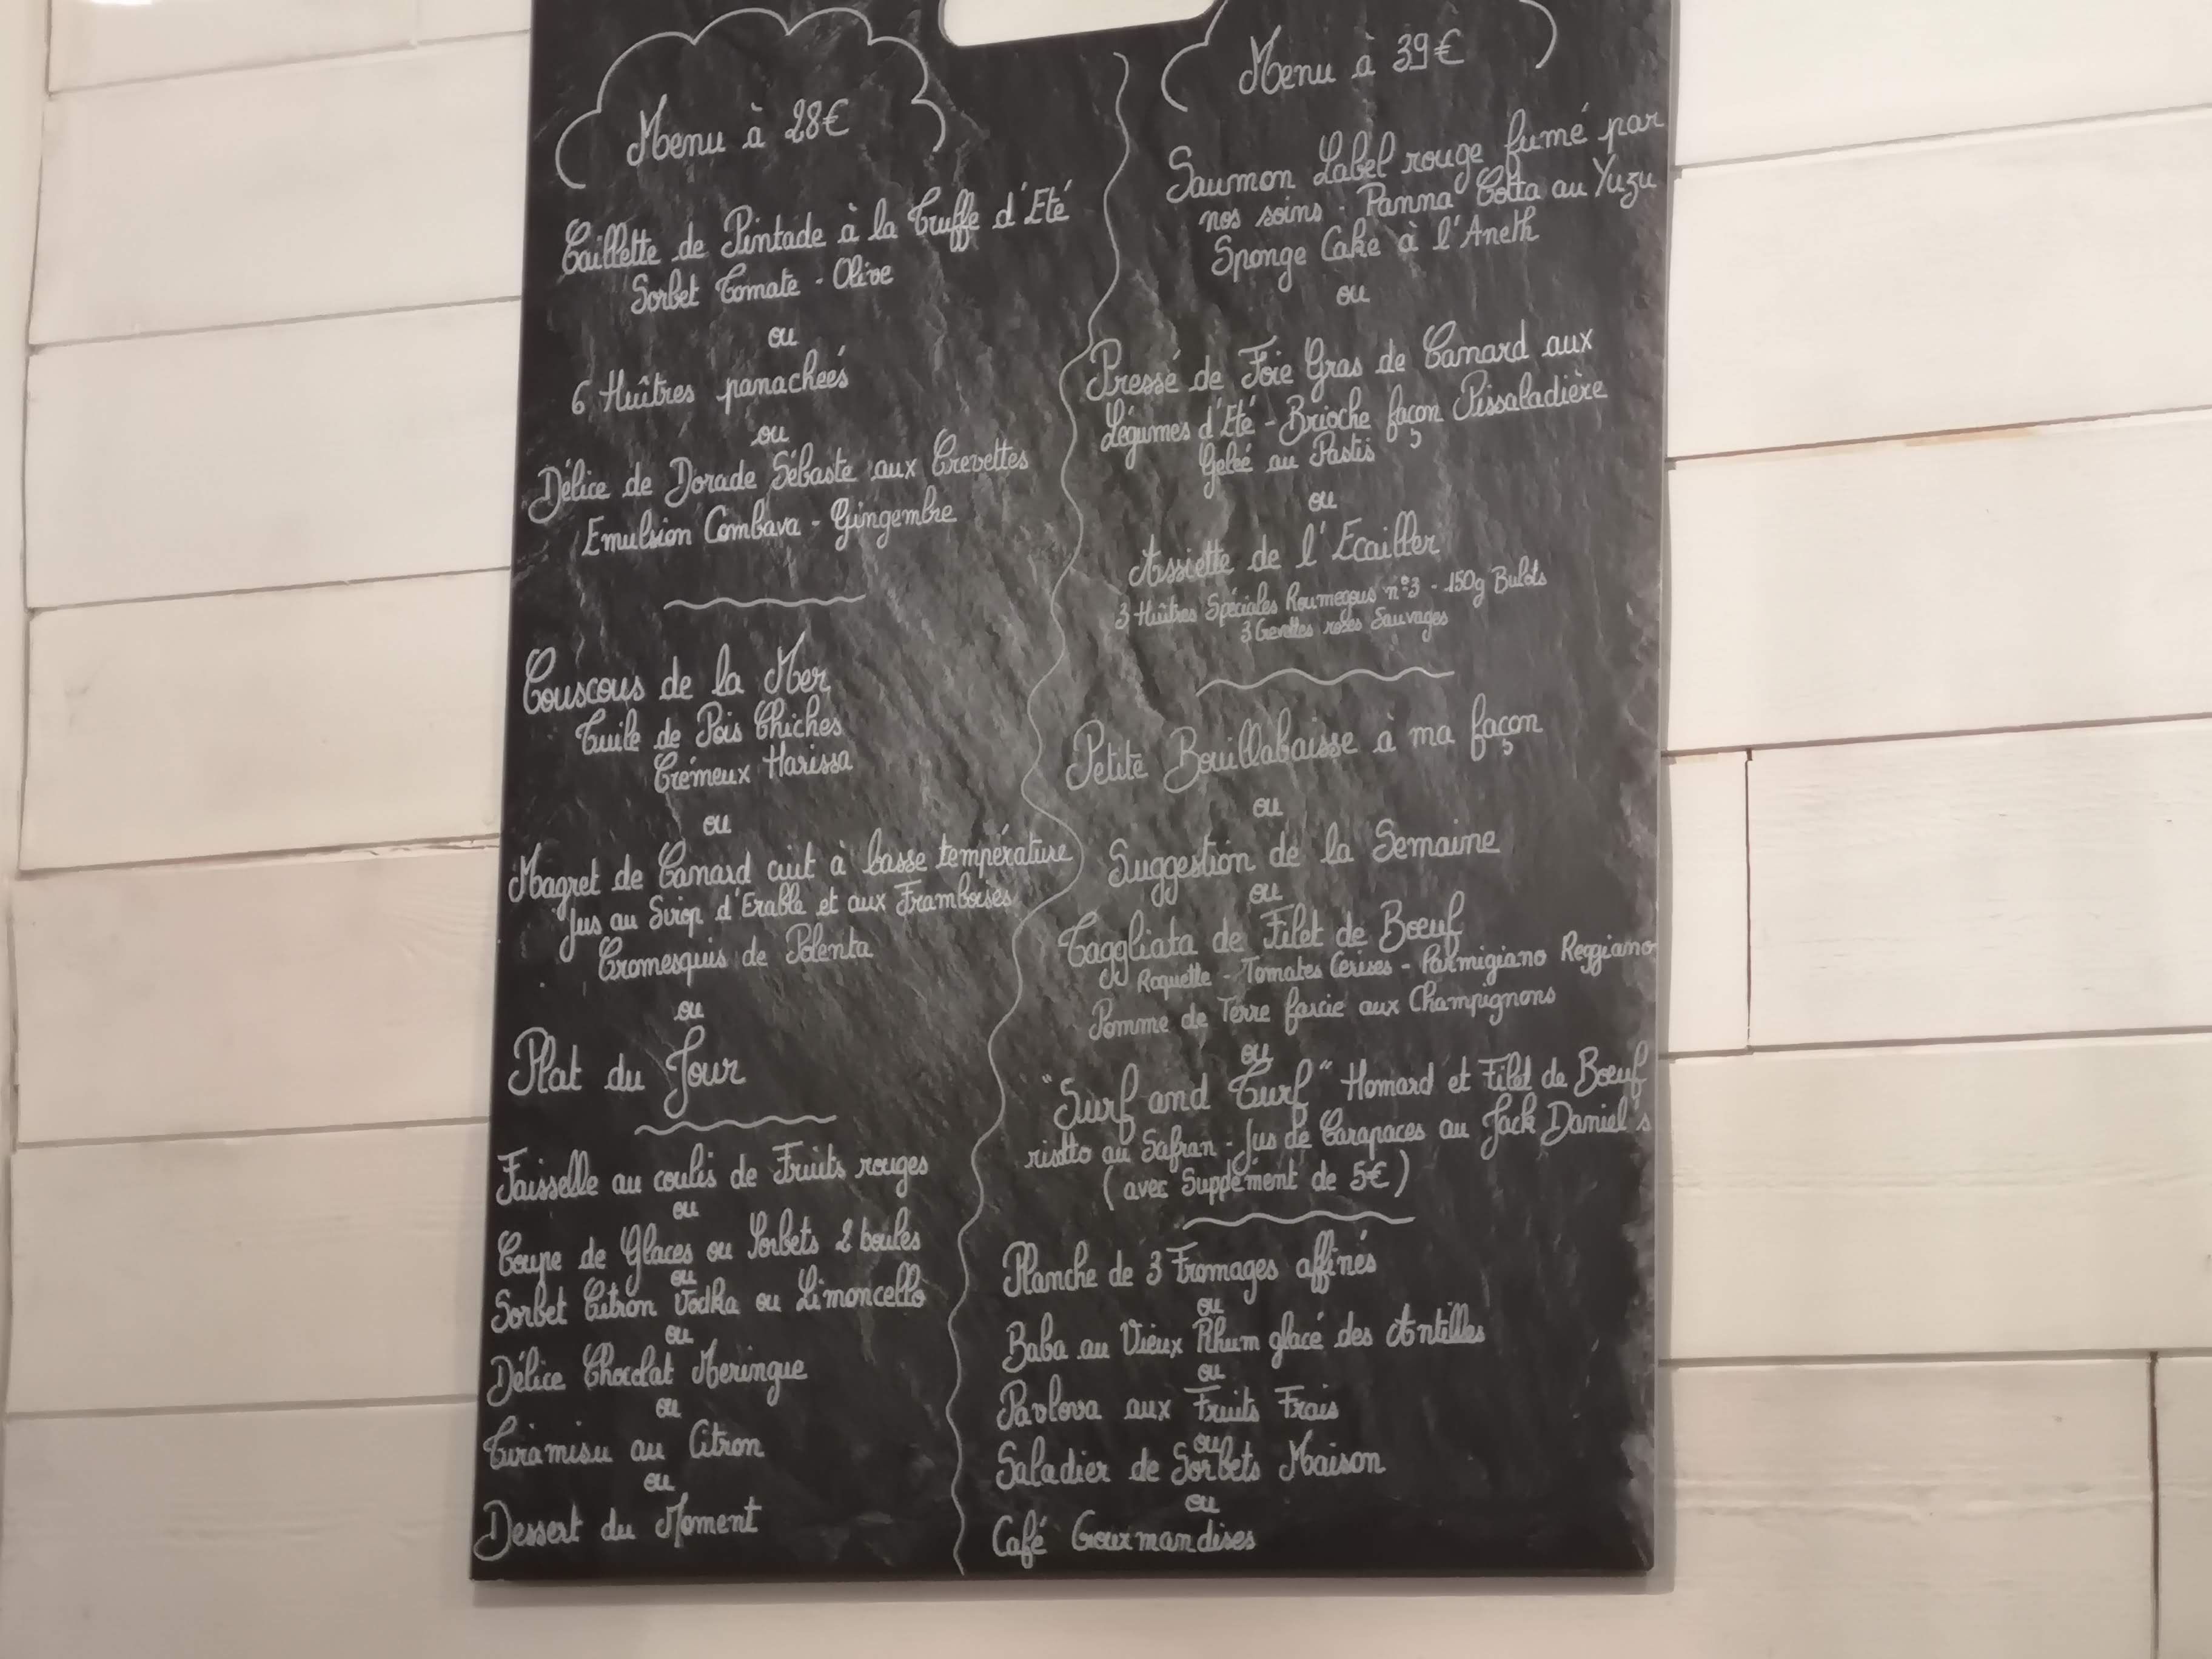 Menu à 28€
Caillette de Pintade à la Truffe d'Eté
Sorbet Tomate - Olive
ou
6 Huîtres panachées
ou
Délice de Dorade Sébaste aux Crevettes
Emulsion Combava - Gingembre
Couscous de la Mer
Tuile de Pois Chiches
Crémeux Harissa
ou
Magret de Canard cuit à basse température
Jus au Sirop d'Erable et aux Framboises
Cromesquis de Polenta
ou
Plat du Jour
Faisselle au coulis de Fruits rouges
ou
Coupe de Glaces ou Sorbets 2 boules
ou
Sorbet Citron Vodka ou Limoncello
ou
Délice Chocolat Meringue
ou
Tiramisu au Citron
ou
Dessert du Moment
Menu à 39€
Saumon Label rouge fumé par
nos soins - Panna Cotta au Yuzu
Sponge Cake à l'Aneth
ou
Pressé de Foie Gras de Canard aux
Légumes d'Eté - Brioche façon Pissaladière
Gelée au Pastis
ou
Assiette de l'Ecailler
3 Huîtres Spéciales Roumegous n°3 - 150g Bulots
3 Crevettes roses Sauvages
Petite Bouillabaisse à ma façon
ou
Suggestion de la Semaine
ou
Taggliata de Filet de Boeuf
Roquette - Tomates Cerises - Parmigiano Reggiano
Pomme de Terre farcie aux Champignons
ou
"Surf and Turf" Homard et Filet de Boeuf
risotto au Safran - Jus de Carapaces au Jack Daniel's
(avec Supplément de 5€)
Planche de 3 Fromages affinés
ou
Baba au Vieux Rhum glacé des Antilles
ou
Pavlova aux Fruits Frais
ou
Saladier de Sorbets Maison
ou
Café Gourmandises